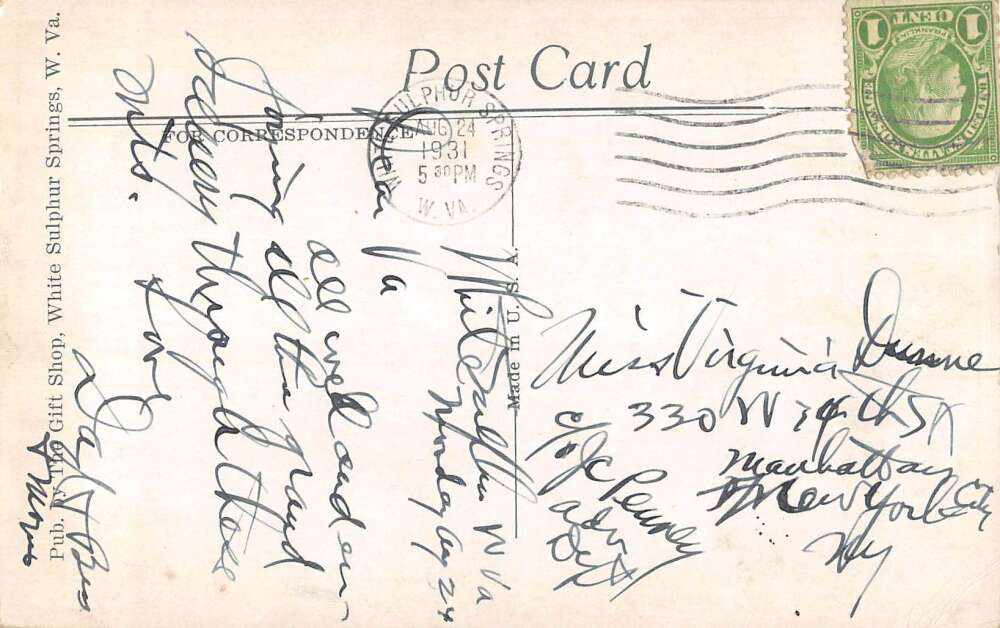 Post Card
FOR CORRESPONDENCE
WHITE SULPHUR SPRINGS
AUG 24
1931
5 30 PM
W. VA.
1 CENT 1
FRANKLIN
Pub. by The Gift Shop, White Sulphur Springs, W. Va.
Made in U. S. A.
White Sulphur W Va
Monday Aug 24
Dear Va
all well and en-
joying all the grand
scenery through these
mts.
Love
Dad & Bess
Miss Virginia Dunne
330 W 34th St
c/o JC Penney
adv
Dept
Manhattan
New York City
NY